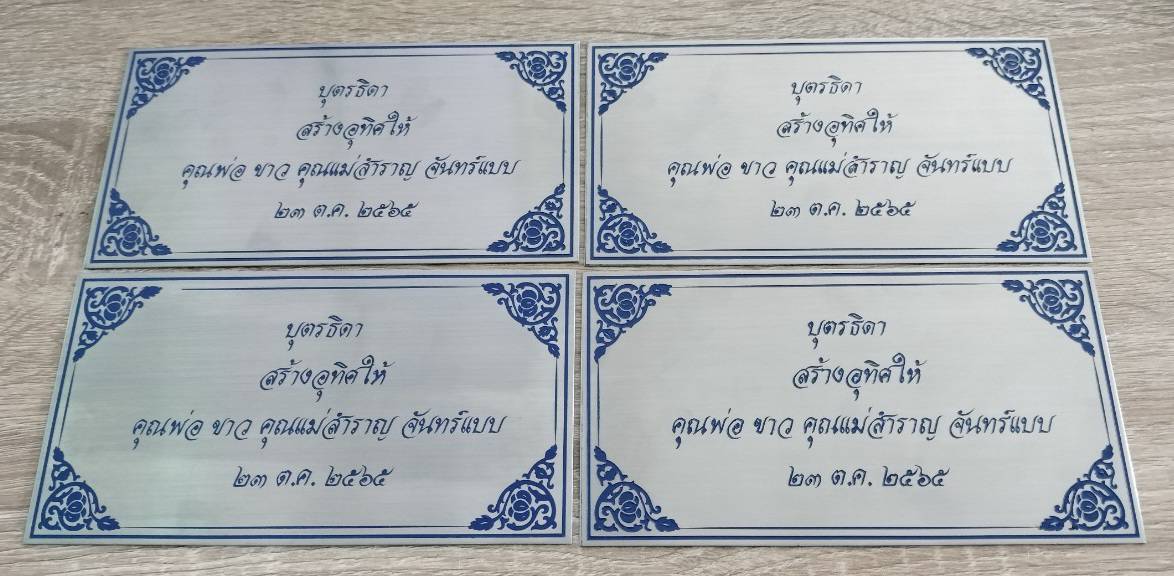 บุตรธิดา
สร้างอุทิศให้
คุณพ่อ ขาว คุณแม่สำราญ จันทร์แบบ
๒๓ ต.ค. ๒๕๖๕
บุตรธิดา
สร้างอุทิศให้
คุณพ่อ ขาว คุณแม่สำราญ จันทร์แบบ
๒๓ ต.ค. ๒๕๖๕
บุตรธิดา
สร้างอุทิศให้
คุณพ่อ ขาว คุณแม่สำราญ จันทร์แบบ
๒๓ ต.ค. ๒๕๖๕
บุตรธิดา
สร้างอุทิศให้
คุณพ่อ ขาว คุณแม่สำราญ จันทร์แบบ
๒๓ ต.ค. ๒๕๖๕